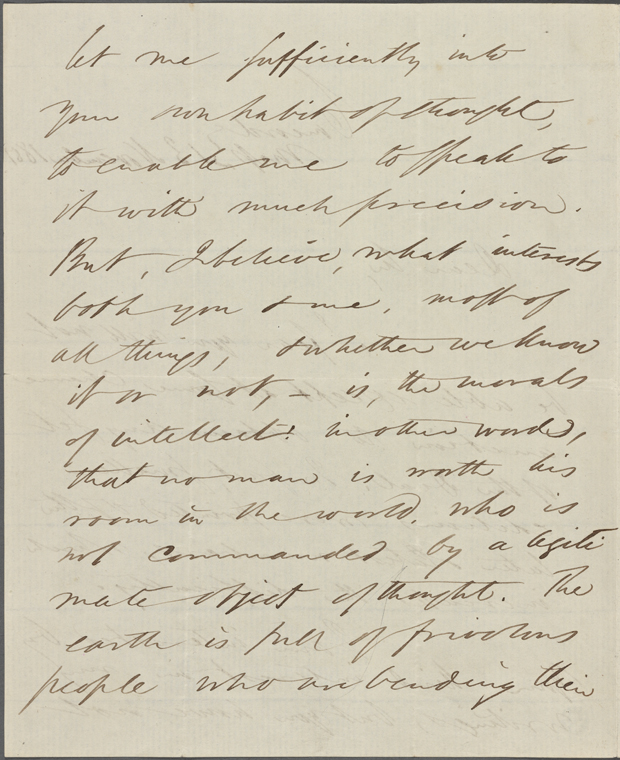 let me sufficiently into
your own habit of thought,
to enable me to speak to
it with much precision.
But, I believe, what interests
both you & me, most of
all things, & whether we know
it or not, — is, the morals
of intellect: in other words,
that no man is worth his
room in the world, who is
not commanded by a legiti
mate object of thought. The
earth is full of frivolous
people who are bending their